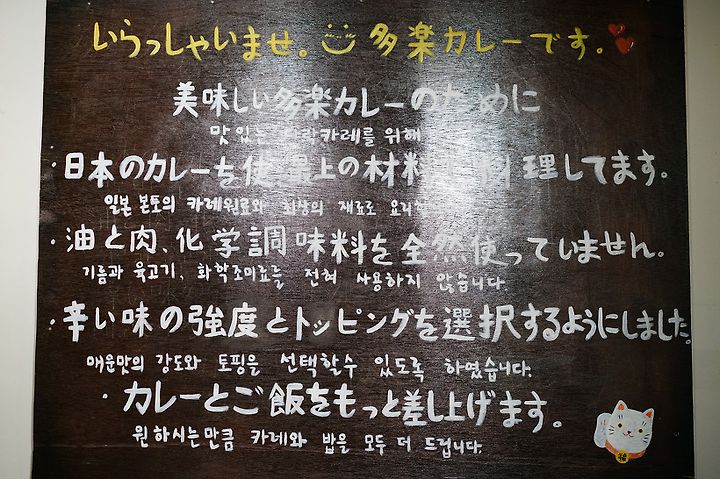 いらっしゃいませ。多楽カレーです。
美味しい多楽カレーのために
맛있는 다락카레를 위해
・日本のカレーを使 最上の材料 料理してます。
일본 본토의 카레원료와 최상의 재료로 요리
・油と肉、化学調味料を全然使っていません。
기름과 육고기、화학조미료를 전혀 사용하지 않습니다.
・辛い味の強度とトッピングを選択するようにしました。
매운맛의 강도와 토핑을 선택할수 있도록 하였습니다.
・カレーとご飯をもっと差し上げます。
원하시는만큼 카레와 밥을 모두 더 드립니다.
福